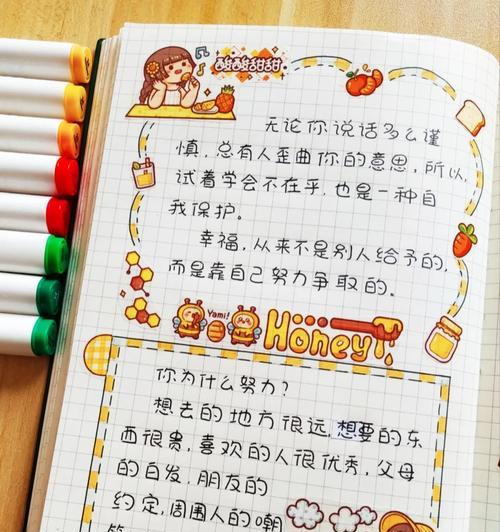 酸酸甜甜
无论你说话多么谨
慎，总有人歪曲你的意思，所以，
试着学会不在乎，也是一种自
我保护。
幸福，从来不是别人给予的，
而是靠自己努力争取的。
Yami!
Honey
你为什么努力？
想去的地方很远，想要的东
西很贵，喜欢的人很优秀，父母
的白发，朋友的
约定，周围人的嘲